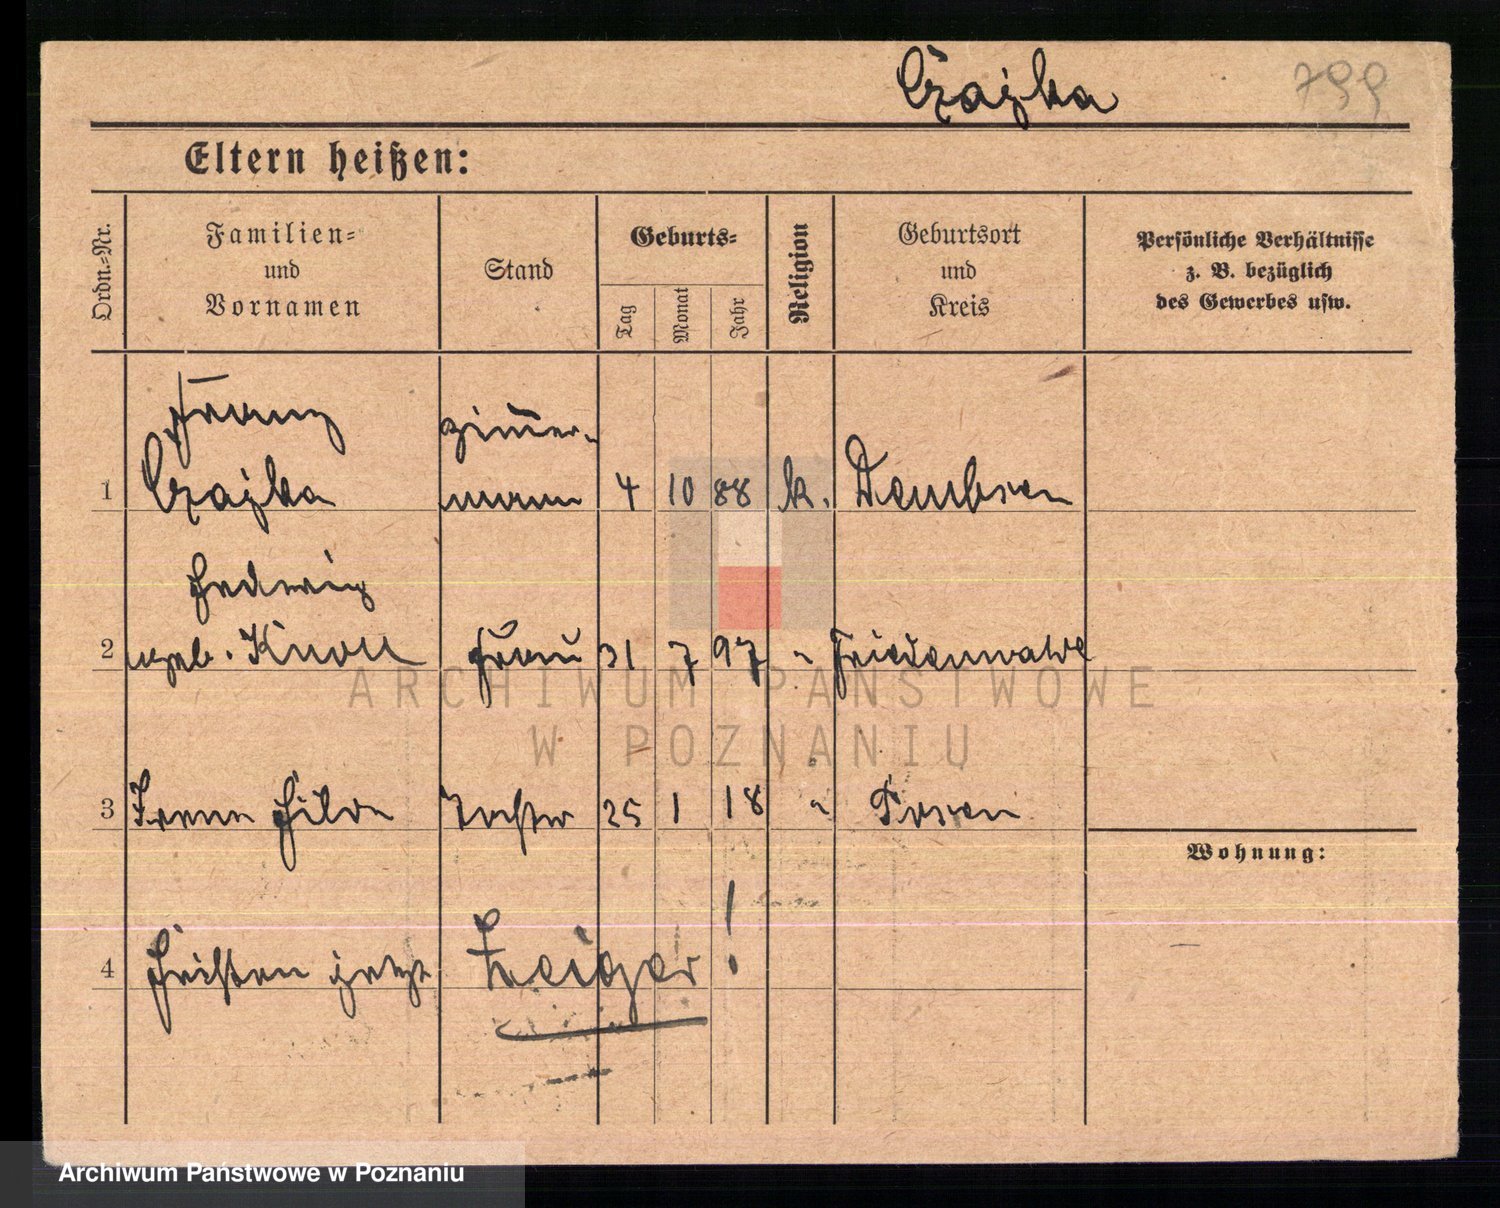 Czajka 799
Eltern heißen:
Ordn.-Nr.
Familien-
und
Vornamen
Stand
Geburts-
Tag
Monat
Jahr
Religion
Geburtsort
und
Kreis
Persönliche Verhältnisse
z. B. bezüglich
des Gewerbes usw.
Franz zim̄er-
1 Czajka mann 4 10 88 k. Dembsen
Hedwig
2 geb. Knoll Frau 31 7 97 " Friedenwalde
3 Irene Hilde Tochter 25 1 18 " Posen
Wohnung:
4 heißen jetzt Zeiger!
ARCHIWUM PAŃSTWOWE
W POZNANIU
Archiwum Państwowe w Poznaniu